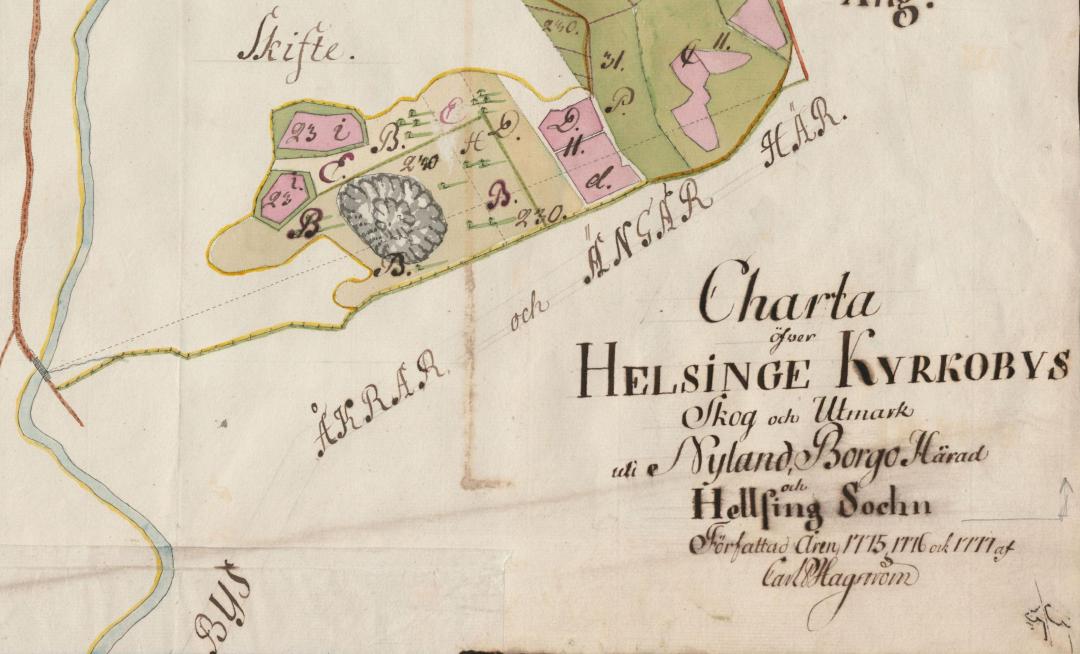 Äng.
Skifte.
230.
31.
P.
C 11.
23 i
E
B.
E
230
H
D.
D.
11.
d.
i.
23
B
B.
230.
B.
ÅKRAR och ÄNGAR HÄR.
BYS
Charta
öfver
HELSINGE KYRKOBYS
Skog och Utmark
uti Nyland, Borgo Härad
och
Hellsing Sochn
Författad Åren, 1775, 1776 och 1777 af
Carl P Hagström